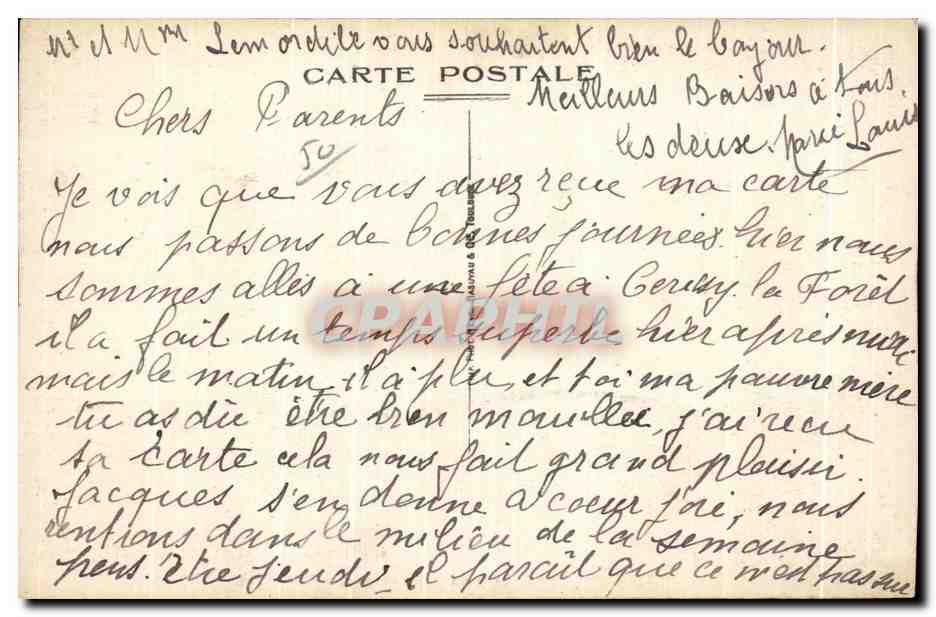 Mr et Mme Lemordile vous souhaitent bien le bonjour.
CARTE POSTALE
Meilleurs Baisers à tous
les deuse. Marie Louis
Chers Parents
50
Je vois que vous avez reçue ma carte
nous passons de bonnes journées. hier nous
sommes alles à une fête à Cerisy la Forêt
il a fait un temps superbe hier après midi
mais le matin il a plu, et toi ma pauvre mère
tu as du être bien mouillee, j'ai recu
ta carte cela nous fait grand plaisir.
Jacques s'en donne a coeur joi, nous
rentrons dans le milieu de la semaine
peut-Etre jeudi, il paraît que ce n'est pas sur
CPAPHIL